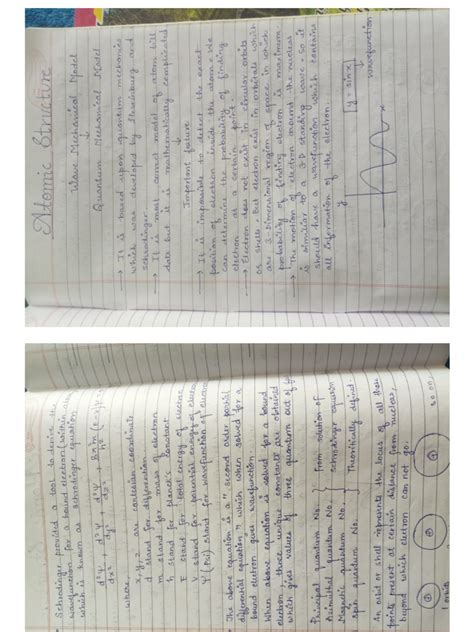 Atomic Structure
Wave Mechanical Model
↓
Quantum Mechanical Model
→ It is based upon quantum mechanics
which was developed by Heisenburg and
schrodinger.
→ It is most correct model of atom till
date but it is mathematically complicated
Important feature
→ It is impossible to detect the exact
position of electron inside the atom. We
can determine the probability of finding
electron at a certain point.
→ Electron does not exist in circular orbits
or shells. But electron exist in orbitals which
are 3-Dimensional region of space in which
probability of finding electron is maximum.
→ The motion of electron around the nucleus
is similar to a 3-D standing wave. So it
should have a wavefunction which contains
all information of the electron.
y
y = sin x
↓
wavefunction
x
Schrodinger provided a tool to derive the
wavefunction for a bound electron (within
which is known as schrodinger equation
d²Ψ/dx² + d²Ψ/dy² + d²Ψ/dz² + 8π²m/h²
where,
x, y, z are cartesian coordinate
d stand for differentiation
m stand for mass of electron
h stand for planck's constant
E stand for total energy of electron
V stand for potential energy of
Ψ (Psi) stand for wavefunction of
• The above equation is a second order partial
differential equation which when solved for a
bound electron gives wavefunction.
When above equation is solved for a bound
electron, three unique constants are obtained
which gives values of three quantum out of
Principal quantum No. } from solution of
Azimuthal quantum No. } Schrodinger equation
Magnetic quantum No. }
spin quantum No. } Theoritically defined.
An orbit or shell represents the locus of all those
points present at certain distance from nucleus,
beyond which electron can not go.